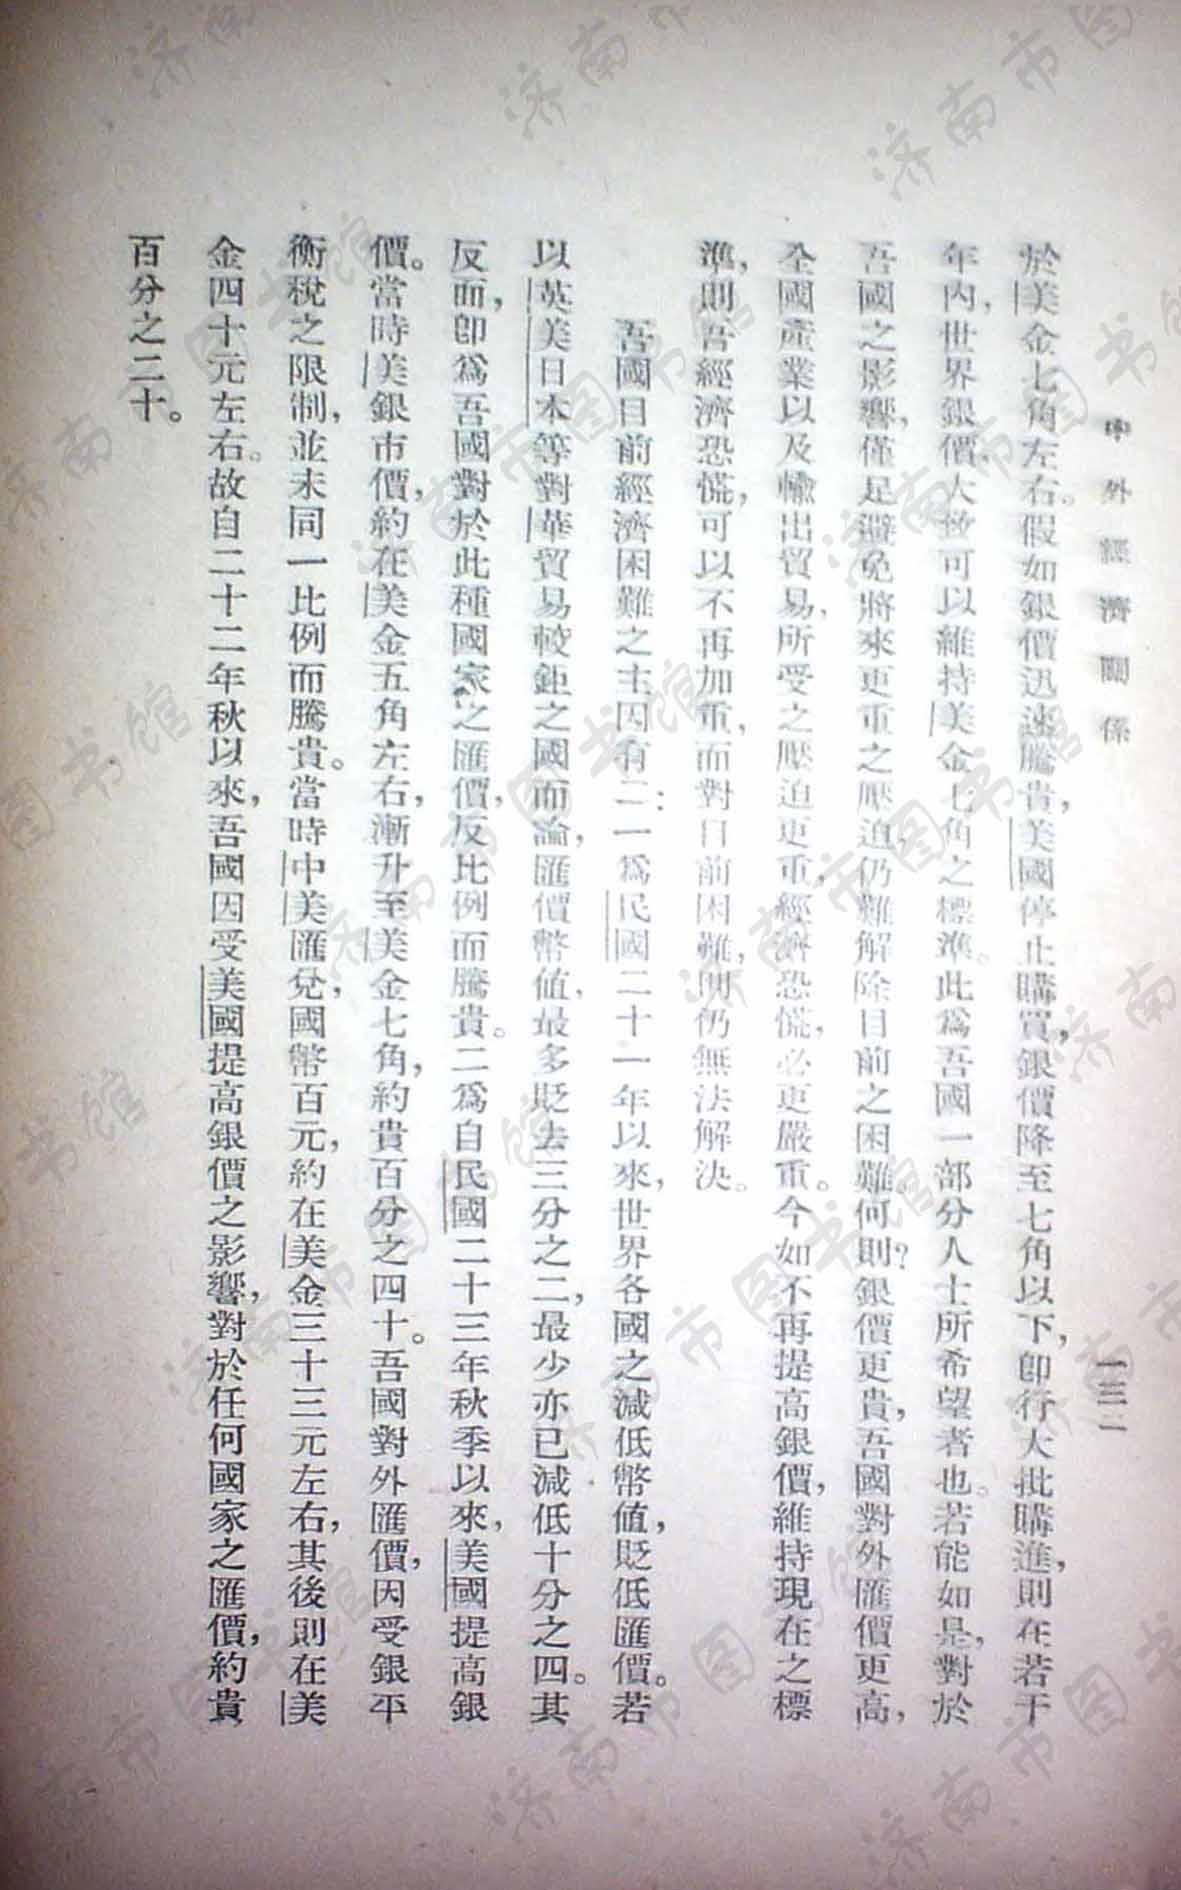 中外經濟關係
一三二
於美金七角左右。假如銀價迅速騰貴，美國停止購買，銀價降至七角以下，卽行大批購進，則在若干
年內，世界銀價，大致可以維持美金七角之標準。此爲吾國一部分人士所希望者也。若能如是，對於
吾國之影響，僅足避免將來更重之壓迫，仍難解除目前之困難。何則？銀價更貴，吾國對外匯價更高，
全國產業以及輸出貿易，所受之壓迫更重，經濟恐慌，必更嚴重。今如不再提高銀價，維持現在之標
準，則吾經濟恐慌，可以不再加重，而對目前困難，則仍無法解決。
吾國目前經濟困難之主因有二：一爲民國二十一年以來，世界各國之減低幣値，貶低匯價。若
以英美日本等對華貿易較鉅之國而論，匯價幣値，最多貶去三分之二，最少亦已減低十分之四。其
反面，卽爲吾國對於此種國家之匯價，反比例而騰貴。二爲自民國二十三年秋季以來，美國提高銀
價。當時美銀市價，約在美金五角左右，漸升至美金七角，約貴百分之四十。吾國對外匯價，因受銀平
衡稅之限制，並未同一比例而騰貴。當時中美匯兌，國幣百元，約在美金三十三元左右，其後則在美
金四十元左右。故自二十二年秋以來，吾國因受美國提高銀價之影響，對於任何國家之匯價，約貴
百分之二十。
济南市图书馆